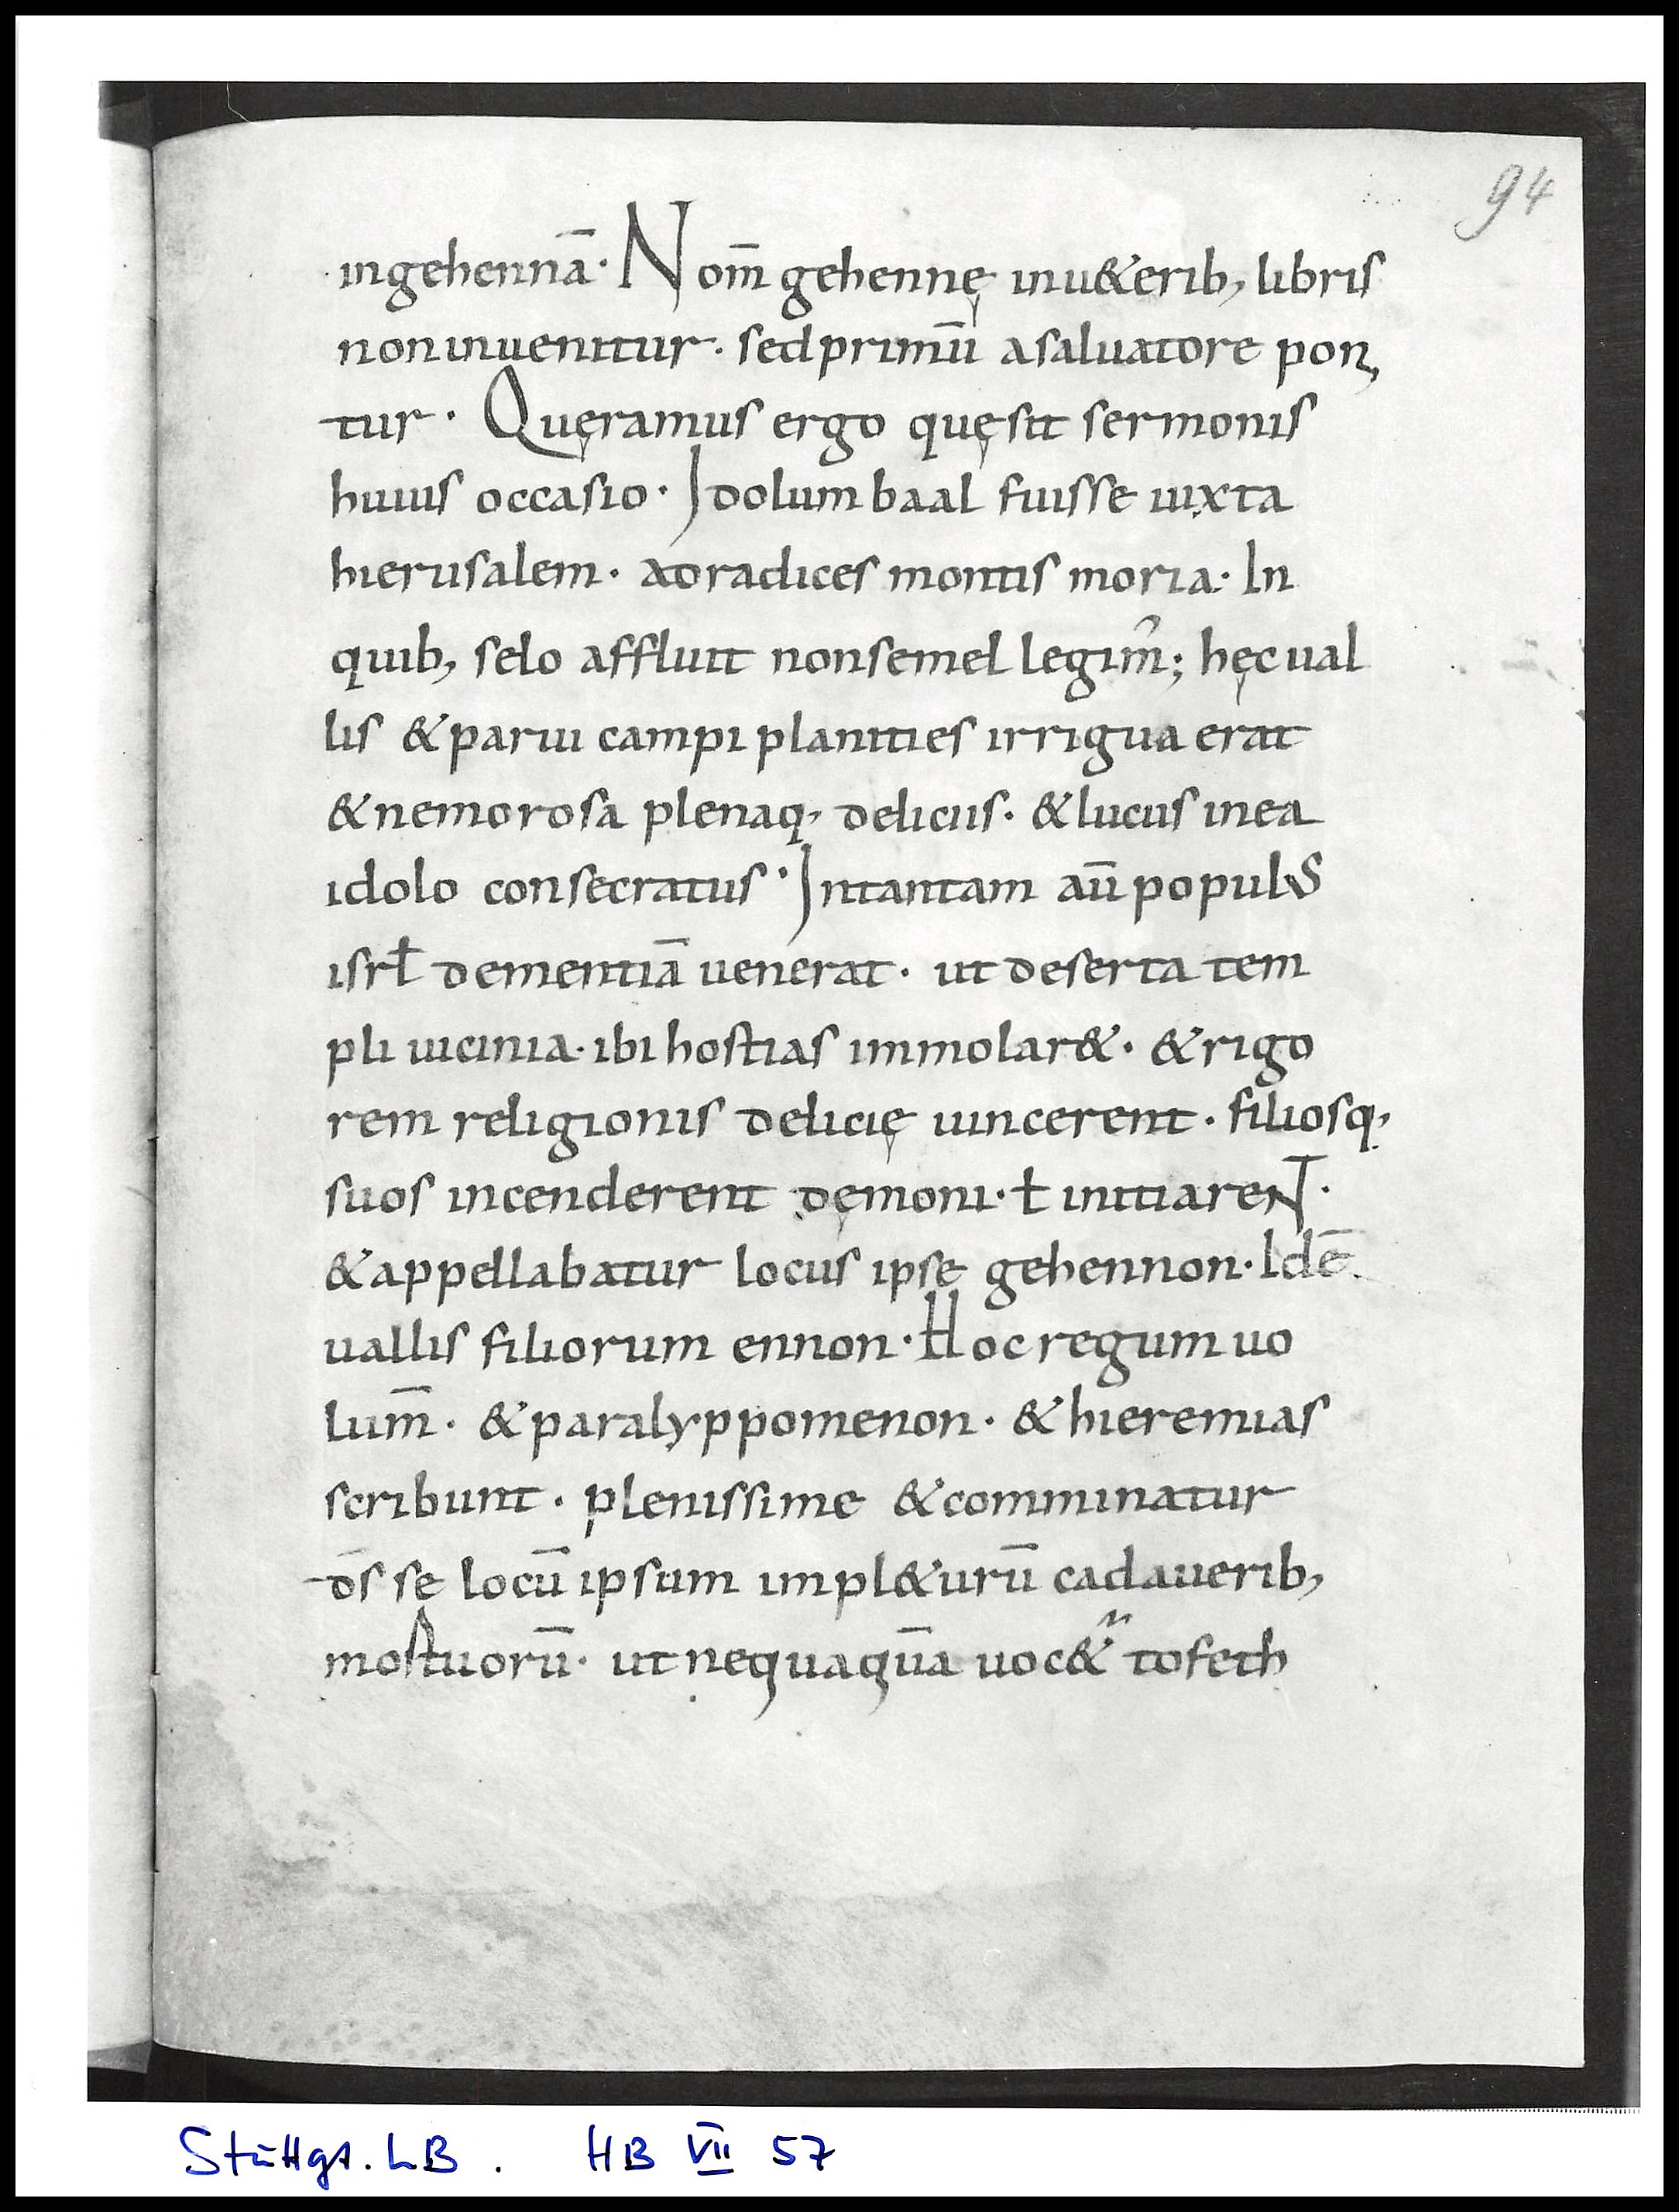 94
ingehennā· Nom̄ gehennę inu&erib; libris
noninuenitur· sedprimū asaluatore poni
tur· Quęramus ergo quęsit sermonis
huius occasio· Idolum baal fuisse iuxta
hierusalem· adradices montis moria· In
quib; selo affluit nonsemel legim̂; hęcual
lis &parui campi planities irrigua erat
&nemorosa plenaq; delicus· &lucus inea
idolo consecratus· Intantam aū populus
isrł dementiā uenerat· ut deserta tem
pli uicinia· ibi hostias immolar&· &rigo
rem religionis delicię uincerent· filiosq;
suos incenderent dęmoni· ł initiarent·
&appellabatur locus ipse gehennon· Idē
uallis filiorum ennon· Hoc regum uo
lum̄· &paralyppomenon· &hieremias
scribunt· plenissime &comminatur
d̄s se locū ipsum impl&urū cadauerib;
mortuorū· ut nequaquā uoc& tofeth
Stuttgt. LB. HB VII 57